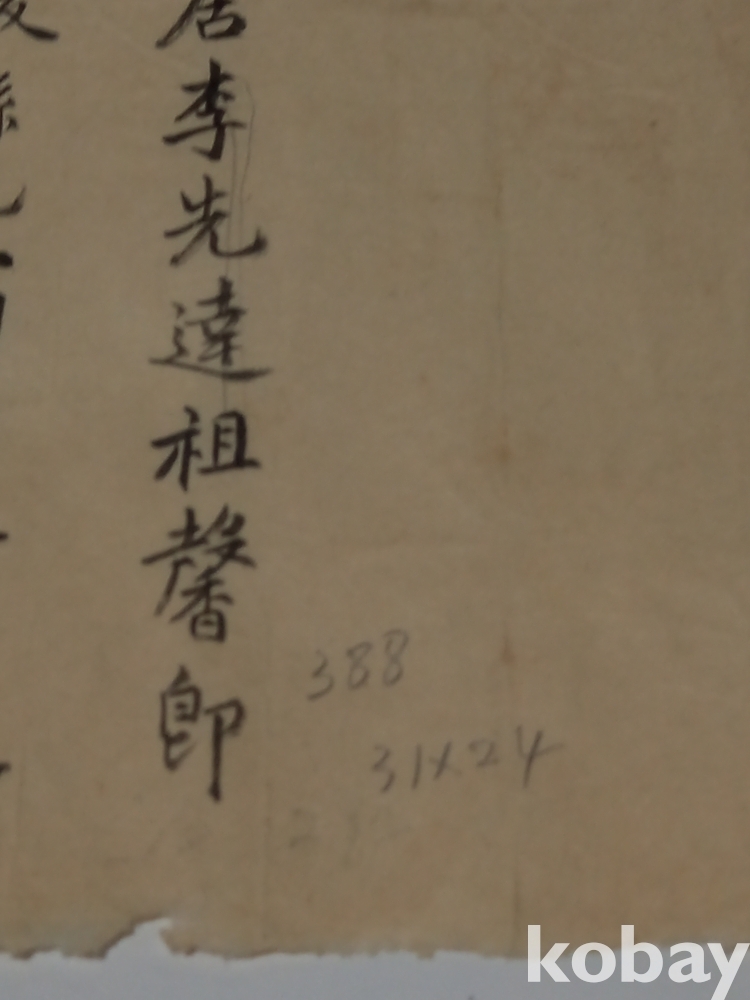 居李先達祖馨即
388
31x24
kobay